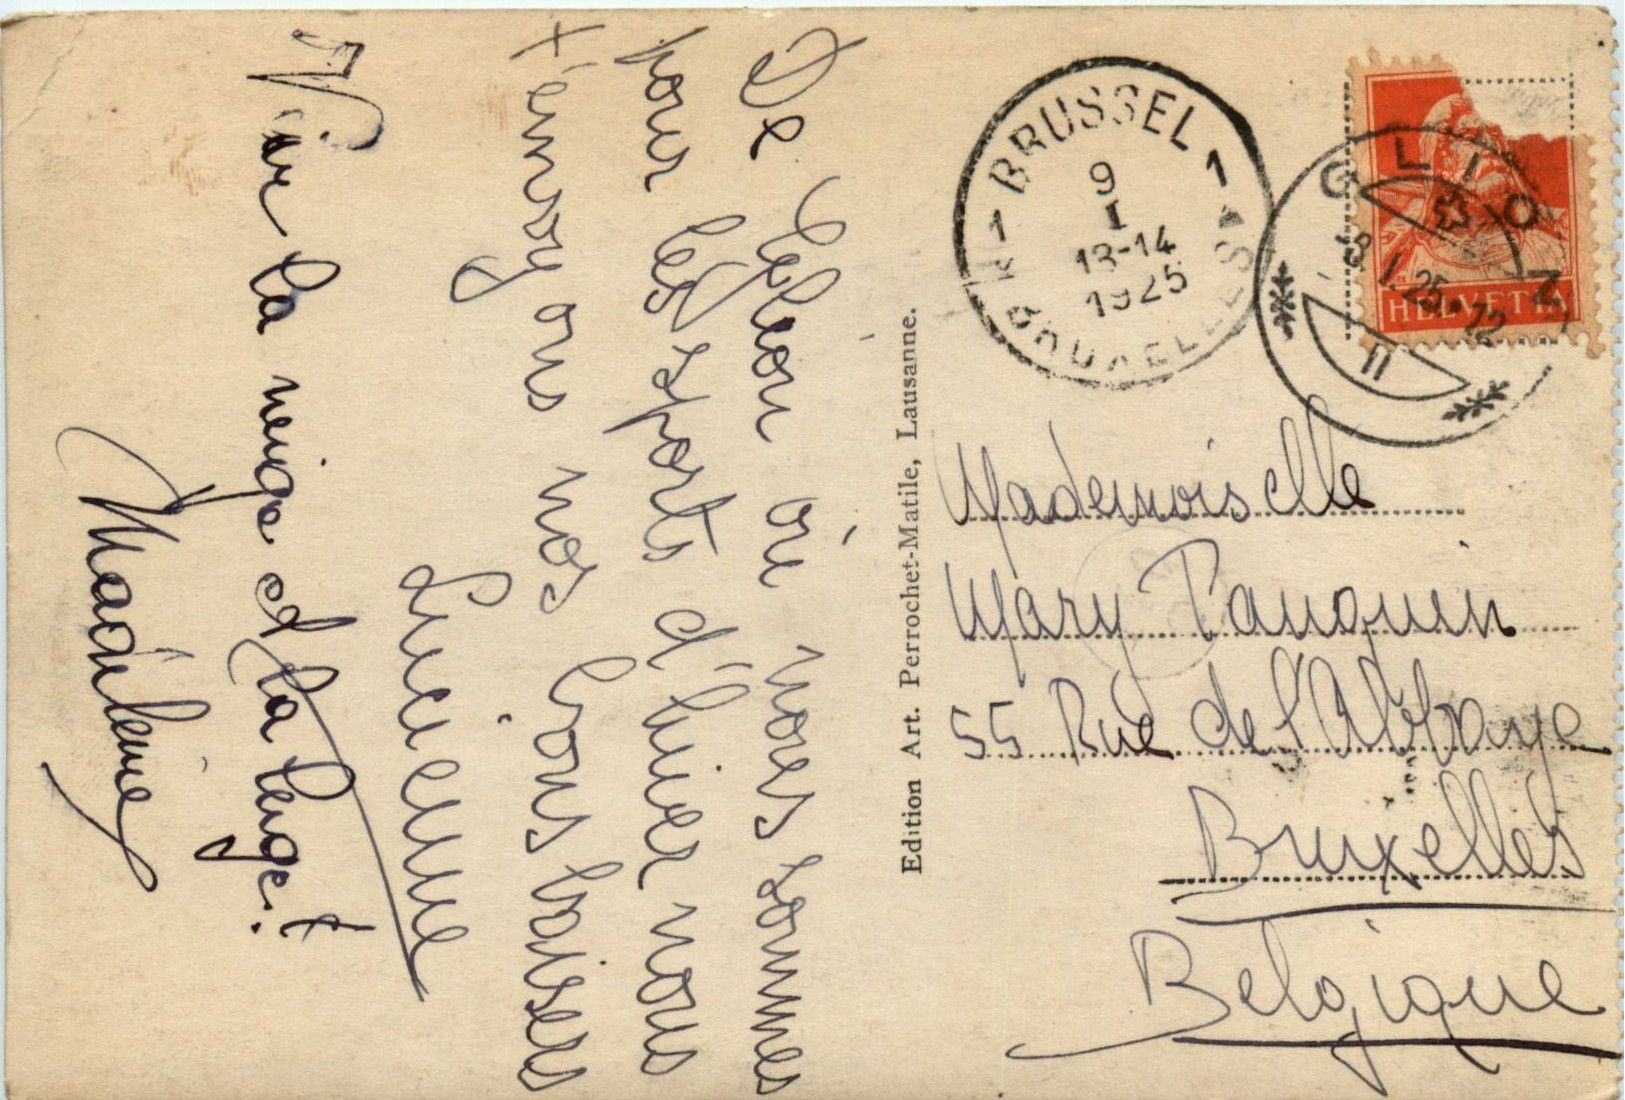 De Glion où nous sommes
pour les sports d'hiver nous
t'envoyons nos bons baisers
Lucienne
Vive la neige et la luge!
Madeleine
Edition Art. Perrochet-Matile, Lausanne.
1 BRUSSEL 1
9
I
13-14
1925
BRUXELLES
GLION
8.I.25.-12
II
HELVETIA
Mademoiselle
Mary Pauquin
55 Rue de l'Abbaye
Bruxelles
Belgique